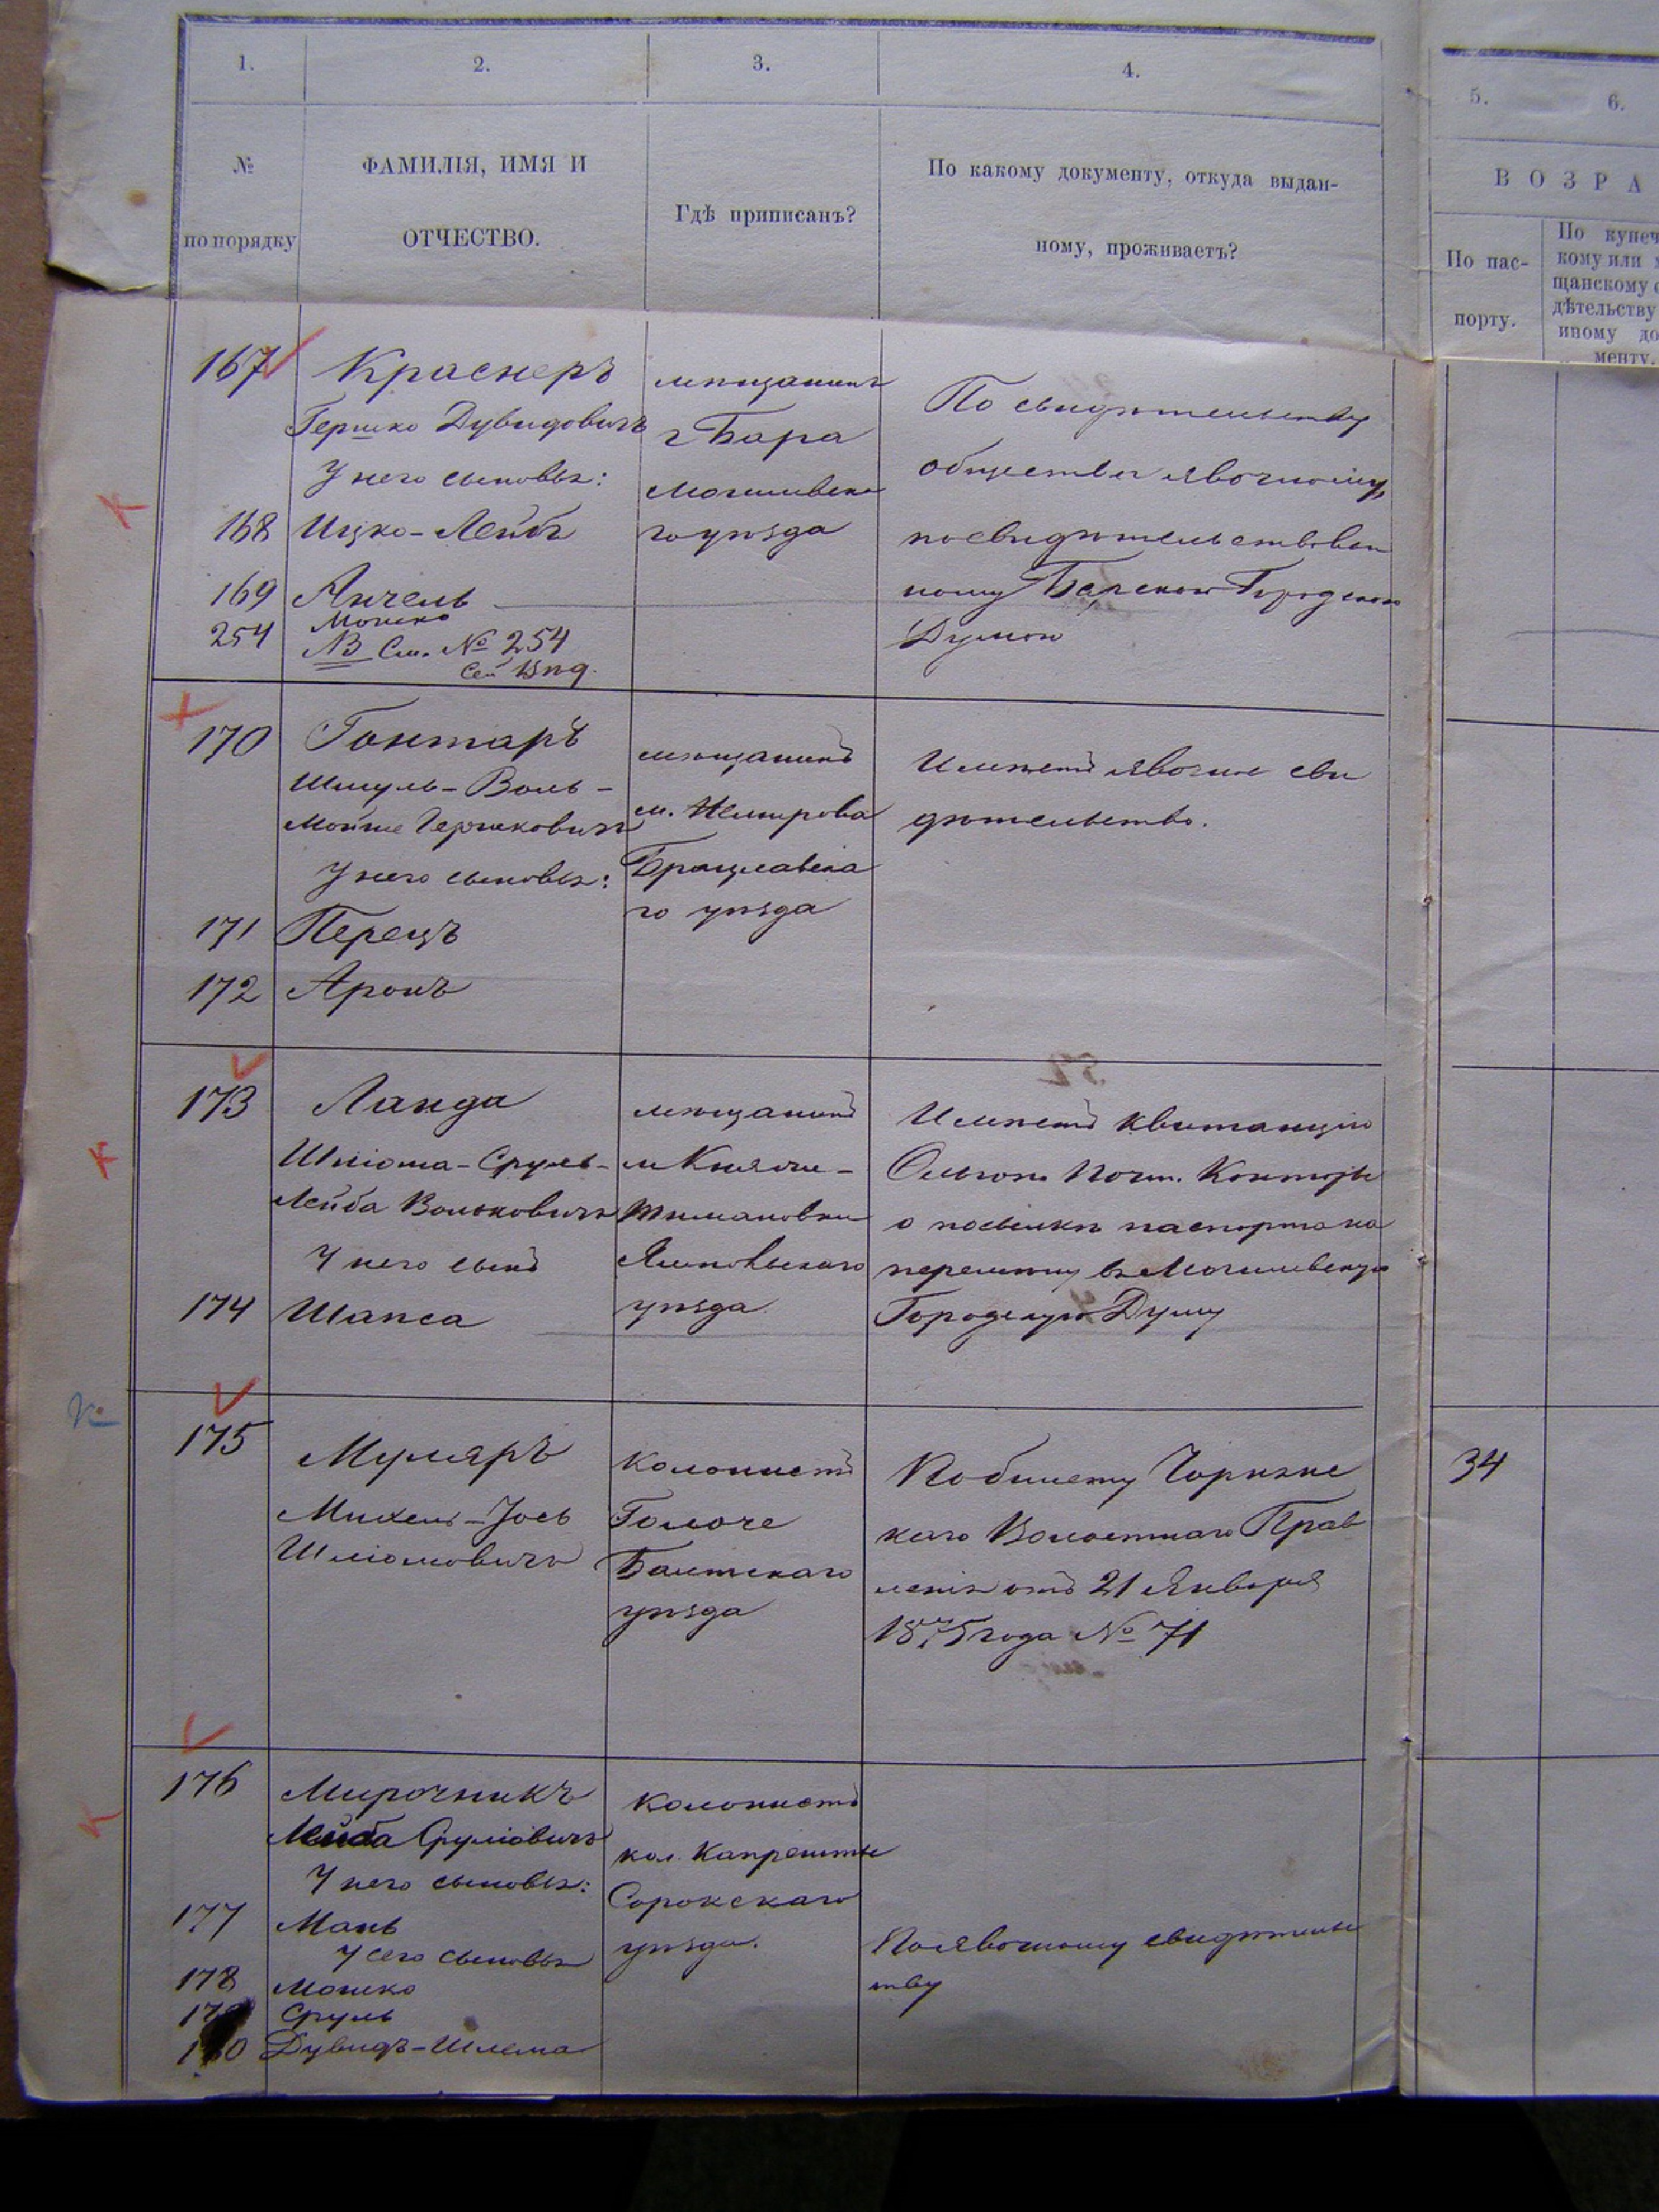 1.
2.
3.
4.
5.
6.
№
по порядку
ФАМИЛІЯ, ИМЯ И
ОТЧЕСТВО.
Гдѣ приписанъ?
По какому документу, откуда выдан-
ному, проживаетъ?
ВОЗРА
По пас-
порту.
По купеч
кому или
щанскому
дѣтельству
иному до
менту.
167
Краснеръ
Гершко Дувидовичъ
У него сыновья:
168 Ицко-Лейбъ
169 Анчель
254 Мошко
NB См. № 254
мѣщанинъ
г Бара
Могилевска
го уѣзда
По свидѣтельству
общества явочному,
посвидѣтельствован
ному Барскою Городскою
Думою
170
Гонтаръ
Шмуль-Воль-
Мойше Гершковичъ
У него сыновья:
171 Перецъ
172 Аронъ
мѣщанинъ
м. Немирова
Брацлавска
го уѣзда
Имѣетъ явочное сви
дѣтельство.
173
Ланда
Шліома-Сруль-
Лейба Вольковичъ
У него сынъ
174 Шапса
мѣщанинъ
м Княже-
Тимановки
Ямпольскаго
уѣзда
Имѣетъ квитанцію
Почт. Конторы
о посылкѣ паспорта на
перемѣну въ Могилевскую
Городскую Думу
175
Муляръ
Михель-Јось
Шліомовичъ
Колонистъ
Балтскаго
уѣзда
По билету
каго Волостнаго Прав
ленія отъ 21 Января
1875 года № 71
34
176
Мирочникъ
Лейба Сруліовичъ
У него сыновья:
177 Мань
У сего сыновья
178 Мошко
179 Сруль
180 Дувидъ-Шлема
колонистъ
кол. Капрешты
Сорокскаго
уѣзда.
По явочному свидѣтельс
тву